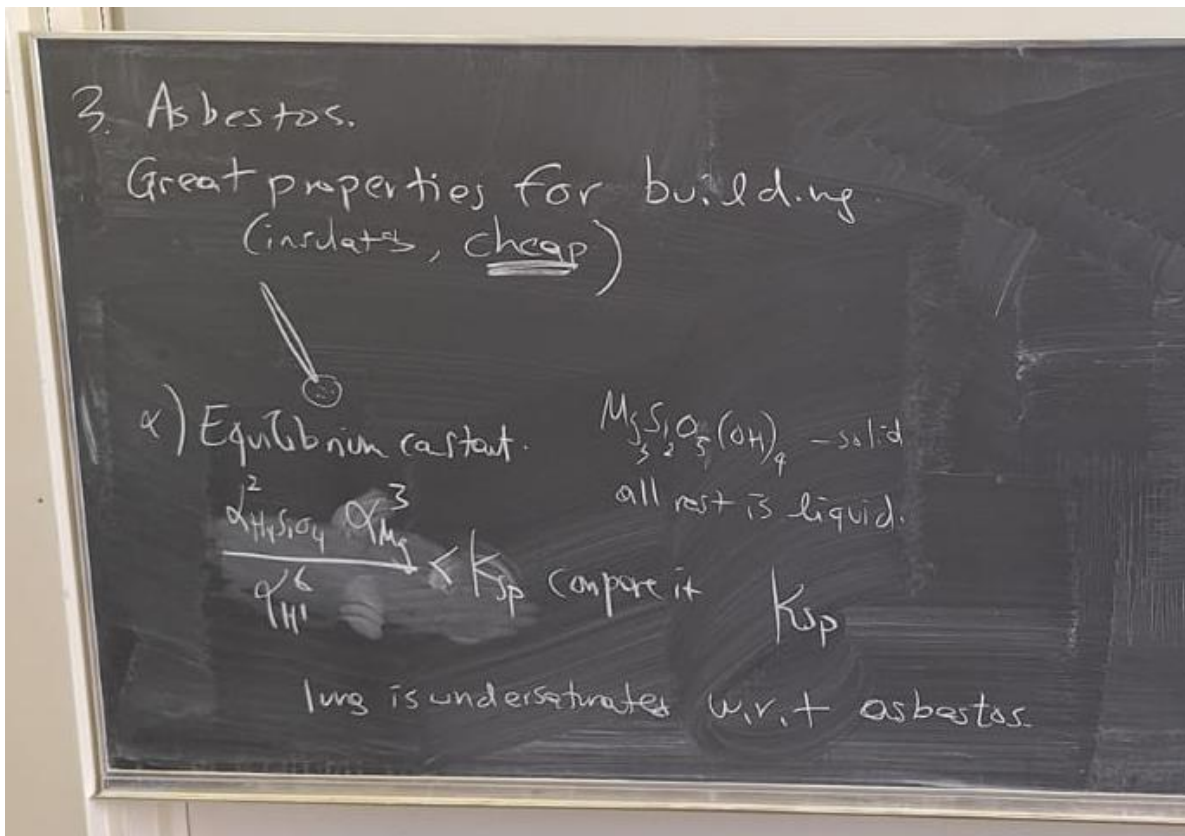 3. Asbestos.
Great properties for building.
(insulates, cheap)
α) Equilibrium constant.
Mg₃Si₂O₅(OH)₄ - solid
all rest is liquid.
α²H₄SiO₄ α³Mg
α⁶H⁺ < Ksp compare it Ksp
lung is undersaturated w.r.t asbestos.